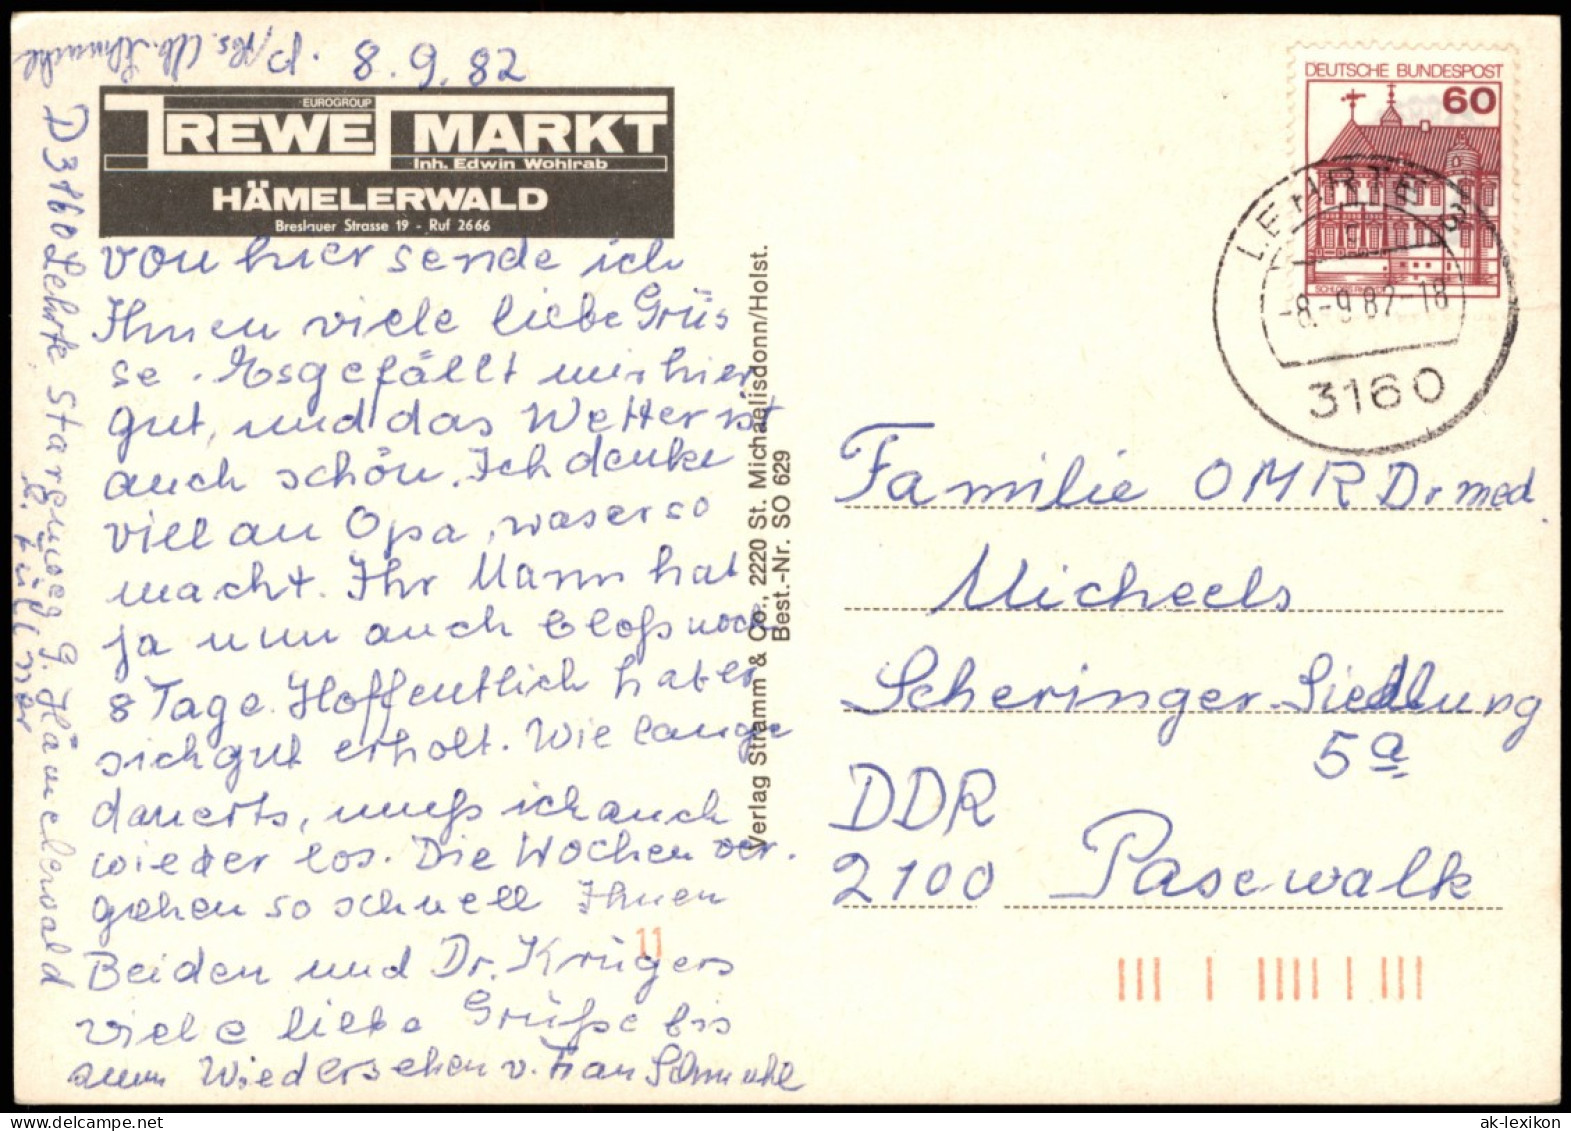 d. 8.9.82
EUROGROUP
REWE MARKT
Inh. Edwin Wohlrab
HÄMELERWALD
Breslauer Strasse 19 - Ruf 2666
von hier sende ich
Ihnen viele liebe Grüs
se. Es gefällt mir hier
gut, und das Wetter ist
auch schön. Ich denke
viel an Opa, was er so
macht. Ihr Mann hat
ja nun auch bloß noch
8 Tage. Hoffentlich hat er
sich gut erholt. Wie lange
dauerts, muß ich auch
wieder los. Die Wochen ver.
gehen so schnell Ihnen
Beiden und Dr. Krügers
viele liebe Grüße bis
zum Wiedersehen v. Frau Schmuhl
D 3160 Lehrte Starenweg 9. Hämelerwald
Verlag Stramm & Co., 2220 St. Michaelisdonn/Holst.
Best.-Nr. SO 629
DEUTSCHE BUNDESPOST
60
LEHRTE 3
-8.-9.82-18
3160
Familie OMR Dr med.
Micheels
Scheringer-Siedlung
5a
DDR
2100 Pasewalk
11
ak-lexikon.com